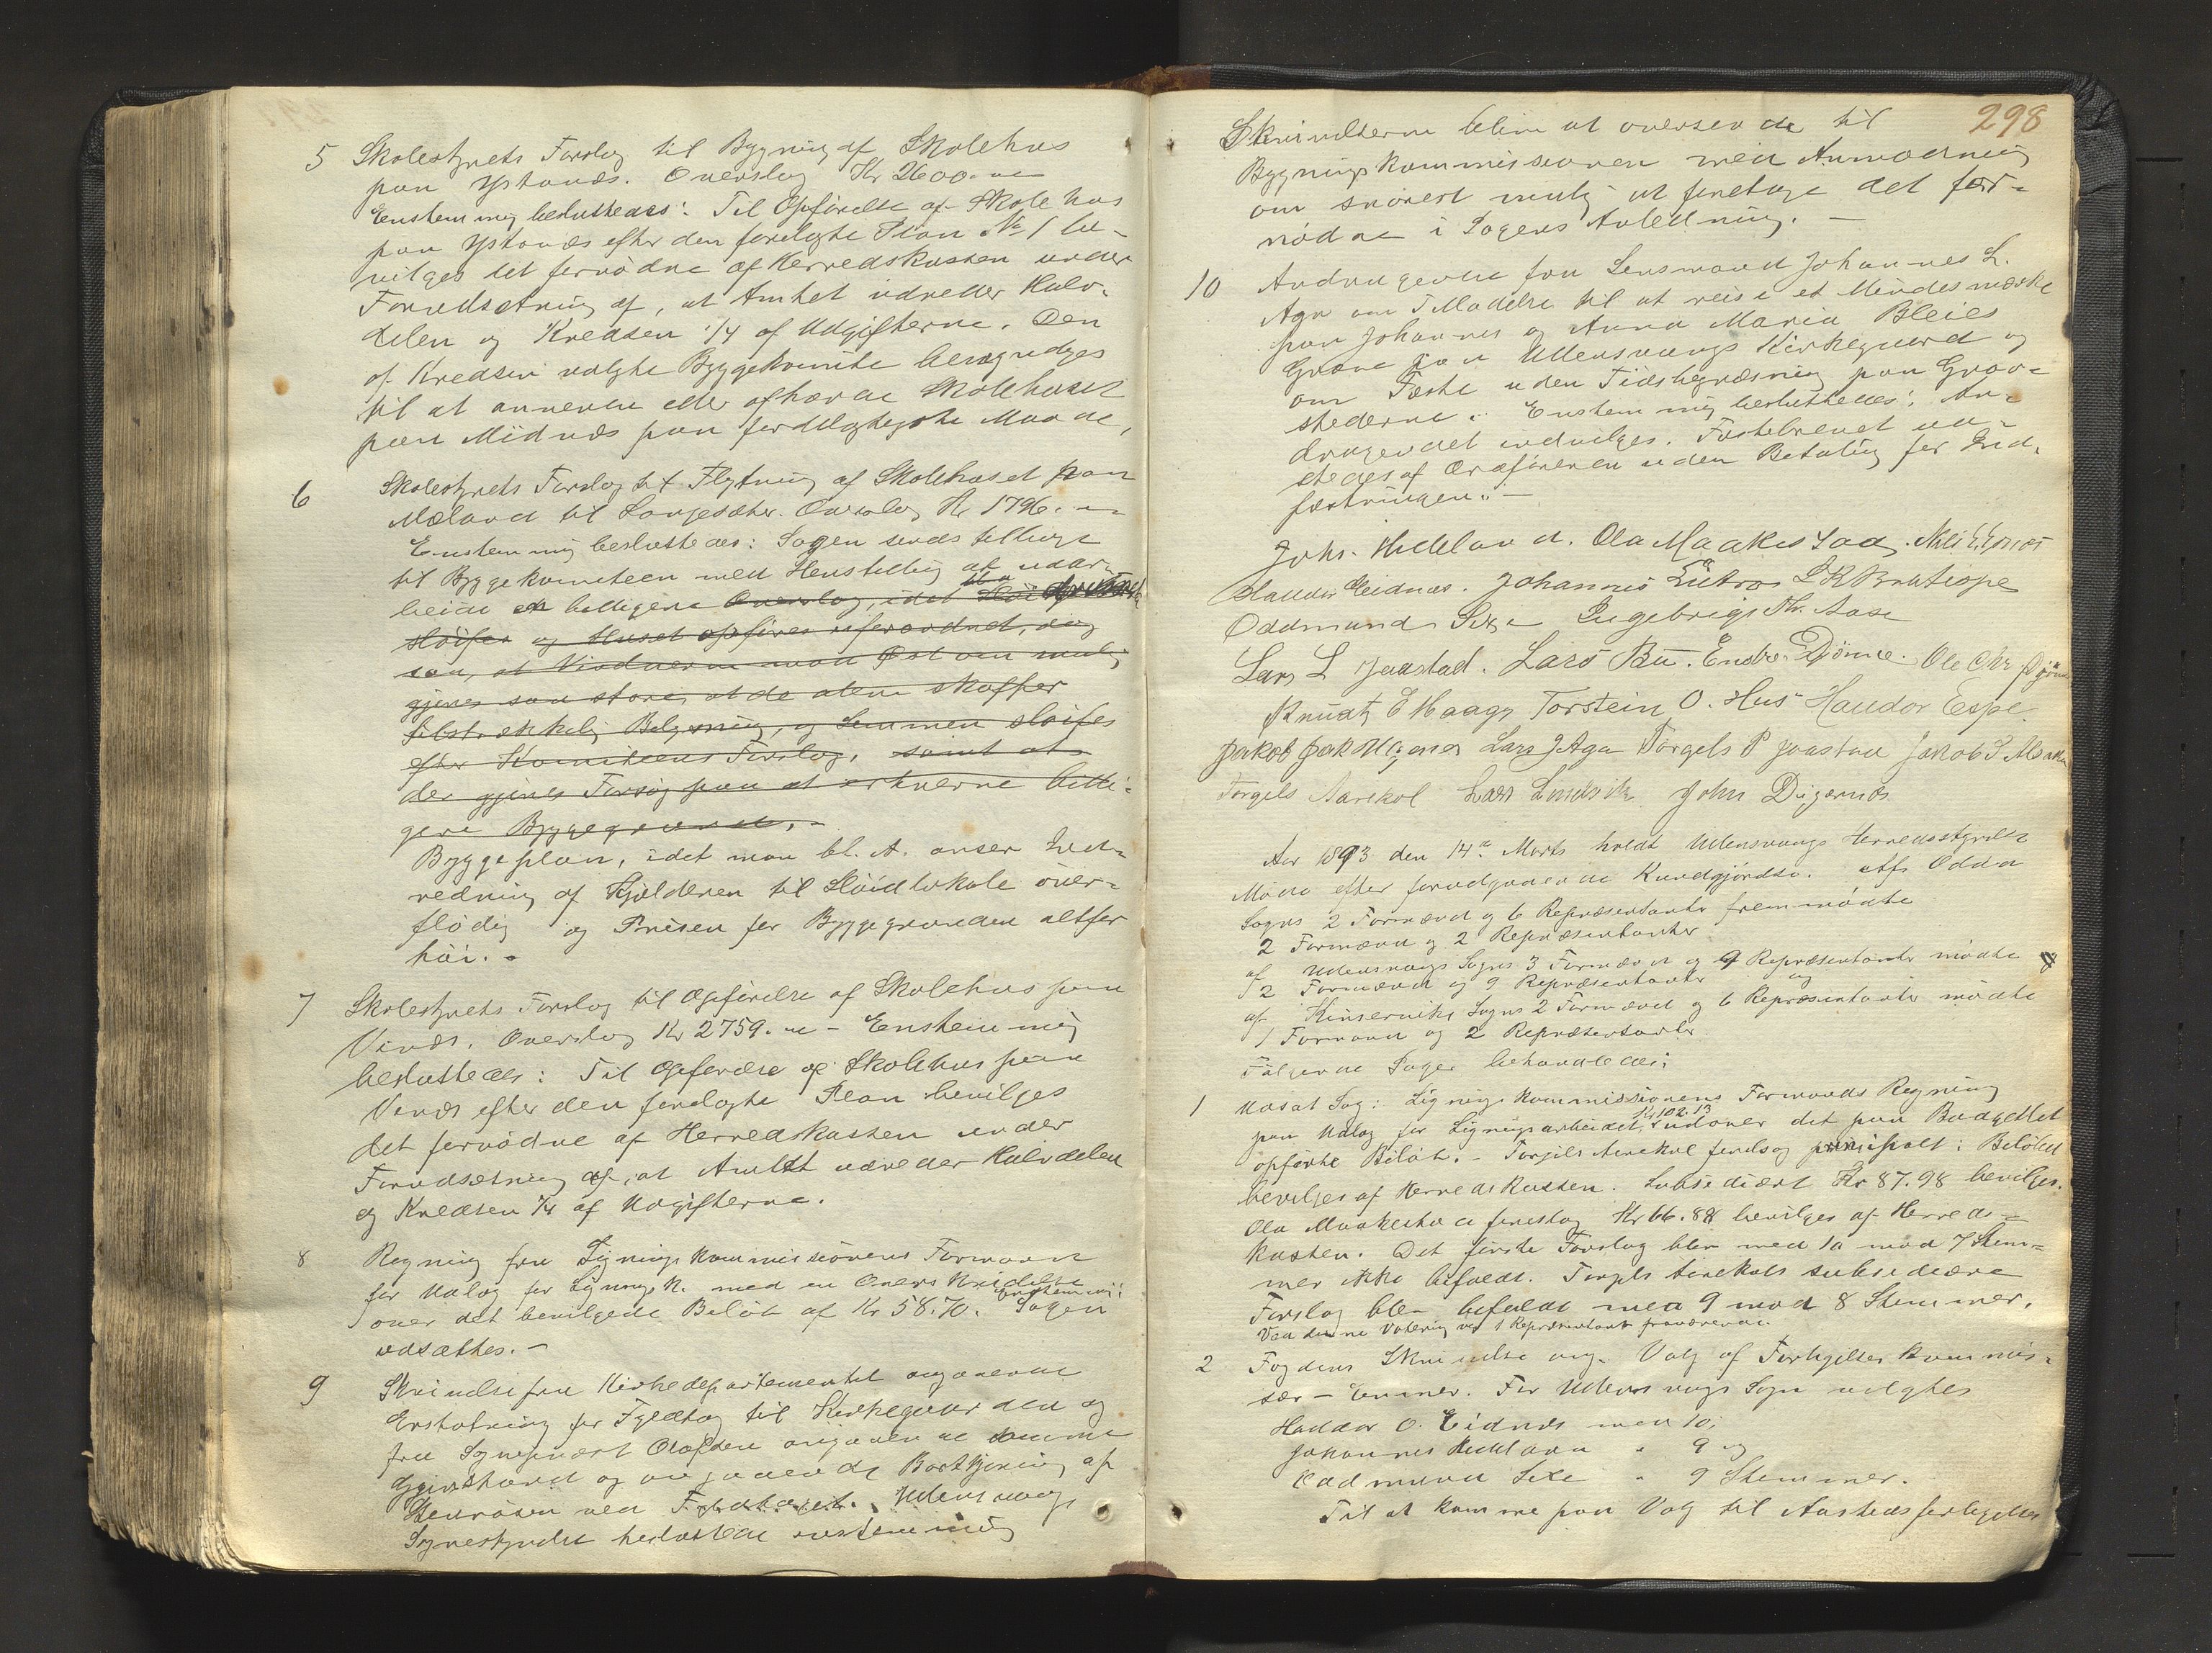 5 Skolestyrets Forslag til Bygning af Skolehus
paa Ystanæs. Overslag Kr 2600.
Enstemmig besluttedes: Til Opførelse af Skolehus
paa Ystanæs efter den forelagte Plan No 1 be-
vilges det fornødne af Herredskassen under
Forudsetning af, at Amtet udreder Halv-
delen og Kredsen 1/4 af Udgifterne. Den
af Kredsen valgte Byggekomite bemyndiges
til at anvende eller afhænde Skolehuset
paa Midnæs paa fordelagtigste Maade,
6 Skolestyrets Forslag til Flytning af Skolehuset paa
Mæland til Langesæter. Overslag Kr 1796.
Enstemmig besluttedes: Sagen sendes tilbage
til Byggekomiteen med Henstilling at udar-
beide en billigere Overslag, idet
sløifes og Huset opføres uforandret, dog
saa, at Vinduerne mod Øst om mulig
gjøres saa store, at de alene skaffer
tilstrækkelig Belysning, og Lemmen sløifes
efter Komiteens Forslag, samt at
der gjøres Forsøg paa at erhverve billi-
gere Byggegrund.
Byggeplan, idet man bl. A. anser Ind-
redning af Kjelderen til Sløidlokale over-
flødig og Prisen for Byggegrunden altfor
høi. -
7 Skolestyrets Forslag til Opførelse af Skolehus paa
Vinæs. Overslag Kr 2759. - Enstemmig
besluttedes: Til Opførelse af Skolehus paa
Vinæs efter den forelagte Plan bevilges
det fornødne af Herredskassen under
Forudsætning af, at Amtet udreder Halvdelen
og Kredsen 1/4 af Udgifterne.
8 Regning fra Ligningskommissionens Formand
for Udlæg for Lignings K. med en Overskridelse
over det bevilgede Beløb af Kr 58.70. Enstemmig: Sagen
udsættes. -
9 Skrivelse fra Kirkedepartementet angaaende
Erstatning for Fyldtag til Kirkegaarden og
fra Sogneprest Olafsen angaaende samme
Gjenstand og angaaende Bortkjøring af
Stenrøsen ved Fyldtaget. Ullensvangs
Sognestyrelse besluttede enstemmig
298
Skrivelserne blive at oversende til
Bygningskommissionen med Anmodning
om snarest mulig at foretage det for-
nødne i Sagens Anledning. -
10 Andragende fra Lensmand Johannes L.
Aga om Tilladelse til at reise et Mindesmærke
paa Johannes og Anna Maria Bleies
Grave paa Ullensvangs Kirkegaard og
om Fæste uden Tidsbegrænsning paa Grav-
stederne. Enstemmig besluttedes: An-
dragendet indvilges. Fæstebrevet ud-
stedes af Ordføreren uden Betaling for Ind-
fæstningen. -
Johs. Hildeland. Ola Maakestad.
Haldor Eidnæs. Johannes Lutro
Oddmund Sexe Ingebrigt Th. Aase
Lars L Jaastad. Lars Bu. Endre Djønne. Ole Chr Djønne
Knudt E Haaga Torstein O. Hus Haldor Espe
Jakob Lars J Aga Torgels P Jaastad Jakob S.
Torgels Aarekol Lars Lindvik John Digernæs
Aar 1893 den 14de Marts holdt Ullensvangs Herredsstyrelse
Møde efter forudgaaende Kundgjørelse. Af Odda
Sogns 2 Formænd og 6 Repræsentanter fremmødte
2 Formænd og 2 Repræsentanter
af Ullensvangs Sogns 3 Formænd og 9 Repræsentanter mødte
2 Formænd og 9 Repræsentanter og
af Kinserviks Sogns 2 Formænd og 6 Repræsentanter mødte
1 Formand og 2 Repræsentanter
Følgende Sager behandledes:
1 Udsat Sag: Ligningskommissionens Formands Regning
paa Udlæg for Ligningsarbeidet, Kr 102.13 udover det paa Budgettet
opførte Beløb. - Torgils Aarekol foreslog principalt: Beløbet
bevilges af Herredskassen. Subsidiært Kr 87.98 bevilges.
Ola Maakestad foreslog Kr 66.88 bevilges af Herreds-
kassen. Det første Forslag blev med 10 mod 7 Stem-
mer ikke bifaldt. Torgils Aarekols subsidiære
Forslag blev bifaldt med 9 mod 8 Stemmer.
Ved denne Votering var 1 Repræsentant fraværende.
2 Fogdens Skrivelse ang. Valg af Forligelseskommis-
sær - Emner. For Ullensvangs Sogn valgtes
Haldor O. Eidnæs med 10,
Johannes Hildeland " 9 og
Oddmund Sexe " 9 Stemmer.
Til at komme paa Valg til Aastedsforligelses